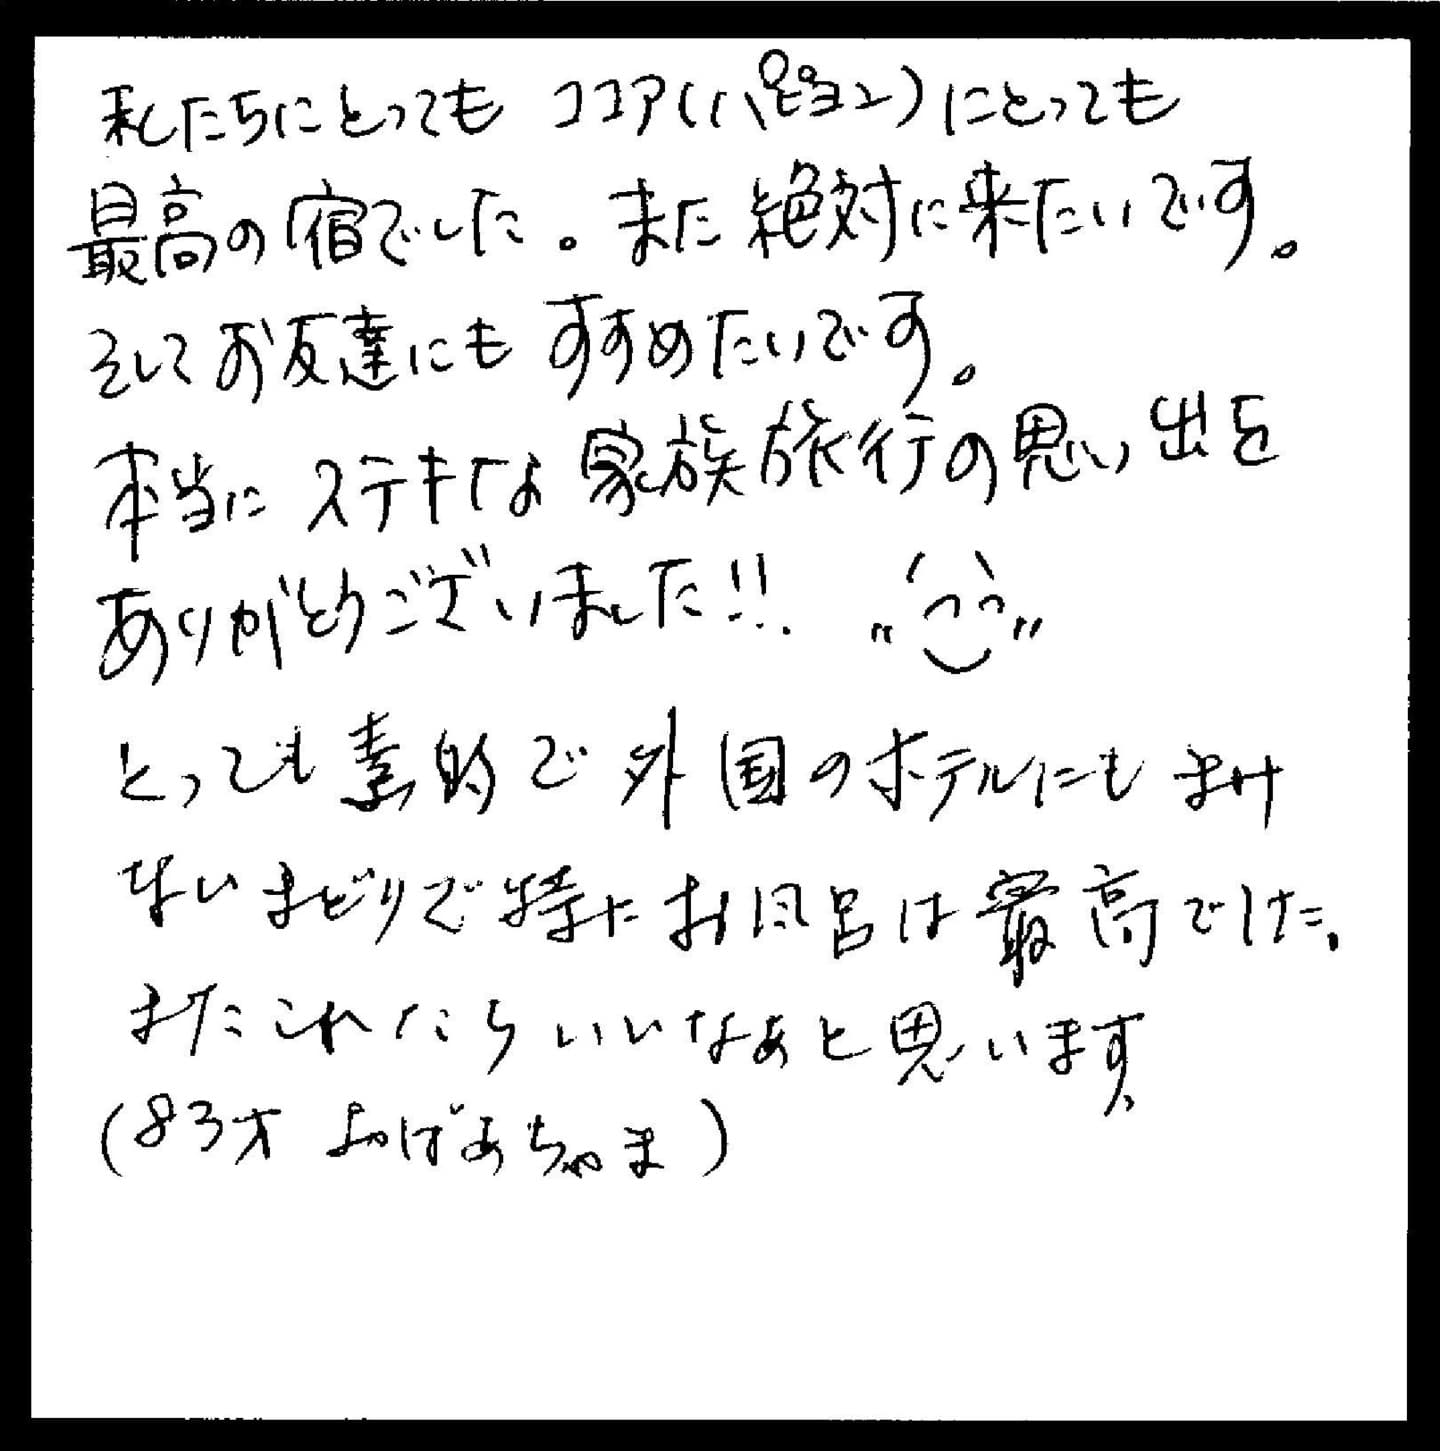 私たちにとっても ココア(パピヨン)にとっても
最高の宿でした。また絶対に来たいです。
そしてお友達にも すすめたいです。
本当に ステキな 家族旅行の思い出を
ありがとうございました!!
とっても素的で外国のホテルにもまけ
ないまどりで特にお風呂は最高でした。
またこれたらいいなあと思います。
(83才 おばあちゃま)